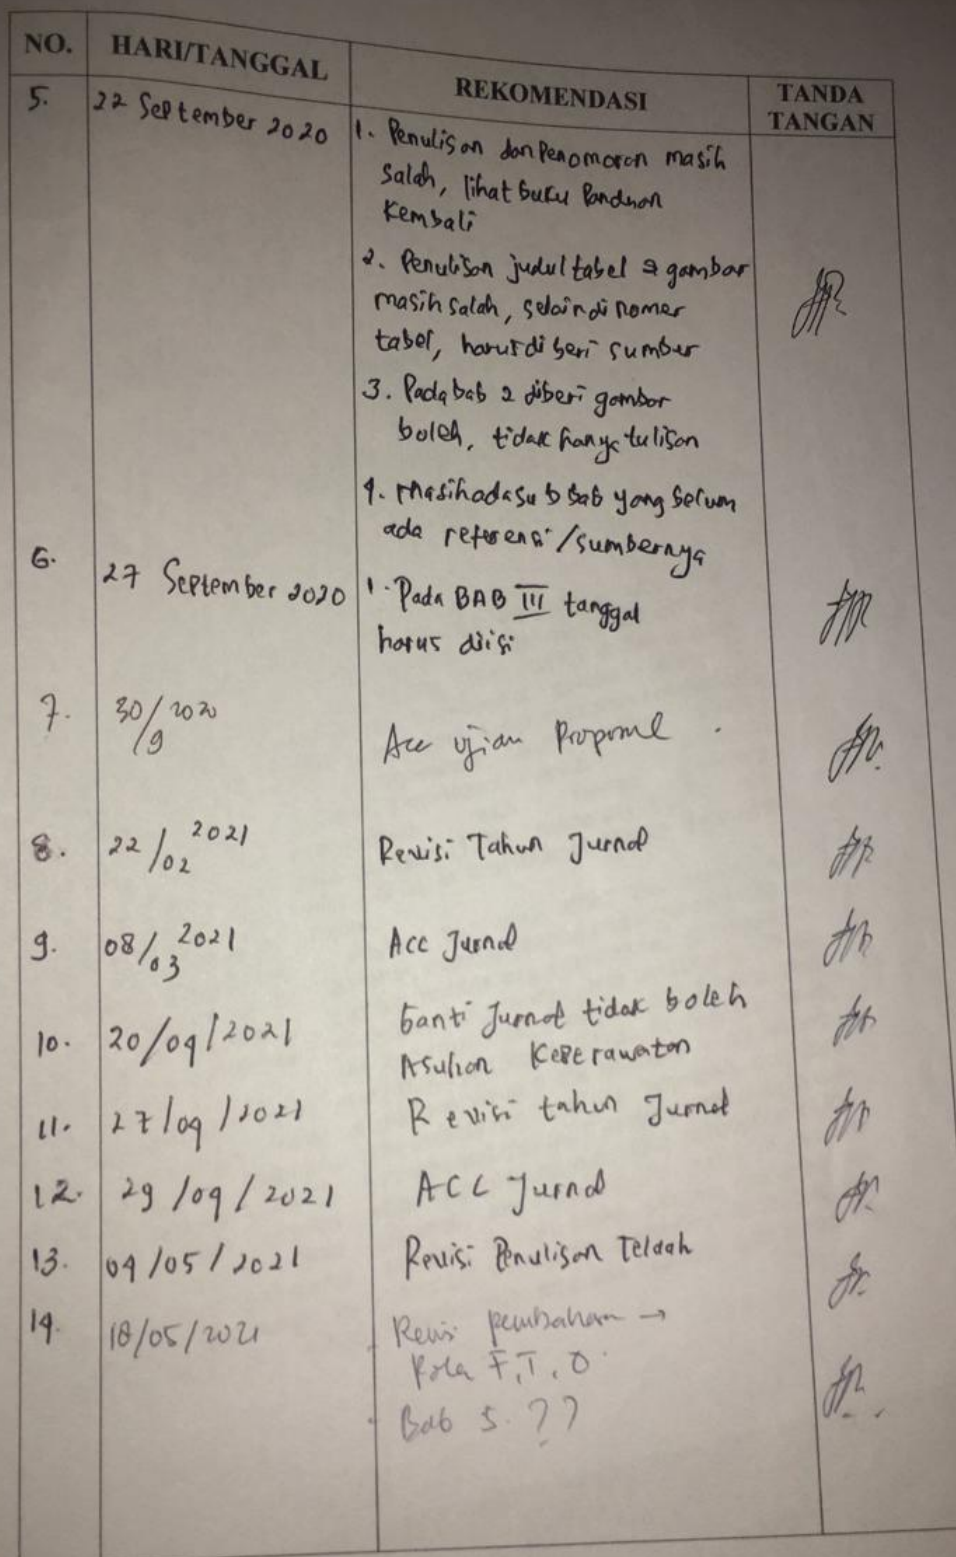 NO. HARI/TANGGAL REKOMENDASI TANDA TANGAN
5. 22 September 2020 1. Penulisan dan Penomoran masih
salah, lihat buku Panduan
kembali
2. Penulisan judul tabel & gambar
masih salah, selain di nomer
tabel, harus di beri sumber
3. Pada bab 2 diberi gambar
boleh, tidak hanya tulisan
4. masih ada sub bab yang belum
ada referensi/sumbernya
6. 27 September 2020 1. Pada BAB III tanggal
harus diisi
7. 30/9 2020 Acc ujian Proposal.
8. 22/02 2021 Revisi Tahun Jurnal
9. 08/03 2021 Acc Jurnal
10. 20/04/2021 Ganti Jurnal tidak boleh
Asuhan Keperawatan
11. 27/04/2021 Revisi tahun Jurnal
12. 29/04/2021 ACC Jurnal
13. 04/05/2021 Revisi Penulisan Telaah
14. 18/05/2021 Revisi pembahasan →
F, T, O.
Bab 5. ??